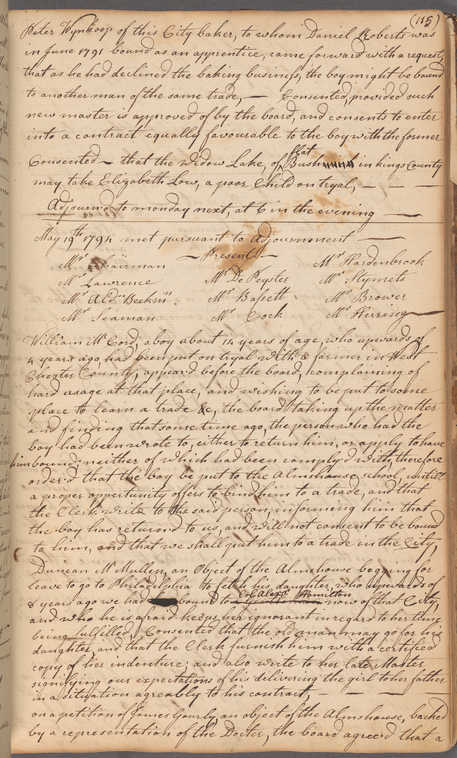 (115)
Peter Wynkoop of this City baker, to whom Daniel Roberts was
in June 1791 bound as an apprentice, came forward with a request,
that as he had declined the baking business, the boy might be bound
to another man of the same trade, — Consented, provided such
new master is approved of by the board, and consents to enter
into a contract equally favourable to the boy with the former
Consented — that the widow Lake, of flat Bush in kings County
may take Elizabeth Low, a poor Child on tryal, —
Adjourn'd to monday next, at 6 in the evening —
May 19th 1794 met pursuant to Adjournment —
— Present —
Mr. Chairman Mr. Hardenbrook
Mr. Lawrence Mr. DePeyster Mr. Stymets
Mr. Aldn. Beekn. Mr. Bassett Mr. Brower
Mr. Seaman Mr. Cock Mr. Herring
William McCord, a boy about 14 years of age, who upwards of
4 years ago had been put on tryal with a farmer in West
Chester County, appear'd before the board, complaining of
hard usage at that place, and wishing to be put to some
place to learn a trade &c, the board taking up the matter
and finding that some time ago, the person who had the
boy had been wrote to, either to return him, or apply to have
him bound, neither of which had been comply'd with, therefore
order'd that the boy be put to the Almshouse school, untill
a proper opportunity offers to bind him to a trade, and that
the Clerk write to the said person, informing him that
the boy has returned to us, and will not consent to be bound
to him, and that we shall put him to a trade in the City,
Duncan McMullen, an Object of the Almshouse begging for
leave to go to Philadelphia to fetch his daughter, who upwards of
8 years ago we had bound to Col. Alexr. Hamilton now of that City,
and who he is afraid keeps her ignorant in regard to her time
being fulfilled, Consented that the old man may go for his
daughter, and that the Clerk furnish him with a certified
copy of her indenture, and also write to her late Master,
signifying our expectations of his delivering the girl to her father
in a situation agreeably to his contract, —
on a petition of James Gourly, an object of the Almshouse, backed
by a representation of the Docter, the board agreed that a